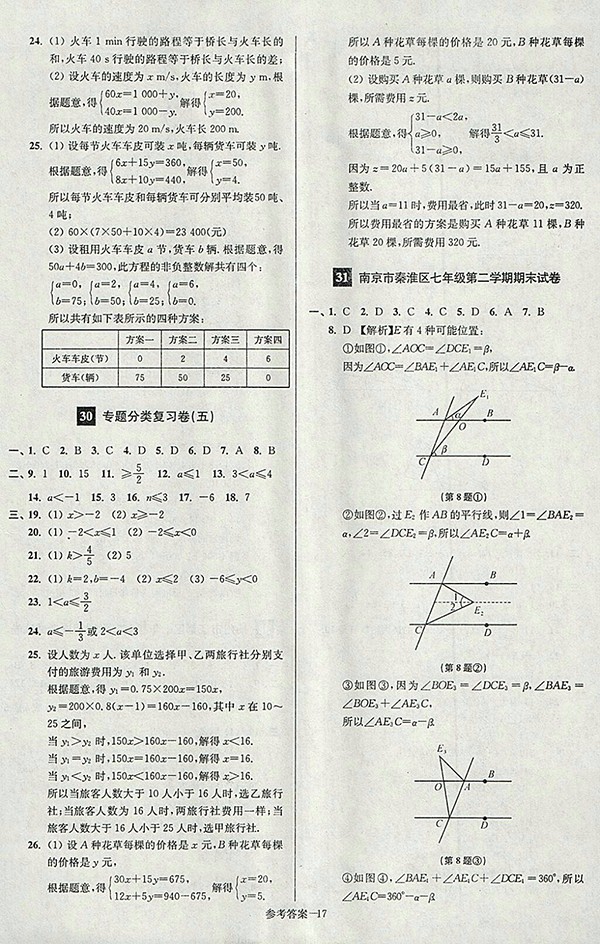 24. (1) 火车 1 min 行驶的路程等于桥长与火车长的
和,火车 40 s 行驶的路程等于桥长与火车长的差;
(2) 设火车的速度为 x m/s,火车的长度为 y m,根
据题意,得{60x=1 000+y, 40x=1 000-y. 解得{x=20, y=200.
所以火车的速度为 20 m/s,火车长 200 m.
25. (1) 设每节火车车皮可装 x 吨,每辆货车可装 y 吨.
根据题意,得{6x+15y=360, 8x+10y=440, 解得{x=50, y=4.
所以每节火车车皮和每辆货车可分别平均装50 吨、
4 吨;
(2) 60×(7×50+10×4)=23 400(元)
(3) 设租用火车车皮 a 节,货车 b 辆. 根据题意,得
50a+4b=300,此方程的非负整数解共有四个:
{a=0, b=75; {a=2, b=50; {a=4, b=25; {a=6, b=0.
所以共有如下表所示的四种方案:
方案一 方案二 方案三 方案四
火车车皮(节) 0 2 4 6
货车(辆) 75 50 25 0
30 专题分类复习卷(五)
一、1. C 2. B 3. C 4. D 5. D 6. D 7. A 8. B
二、9. 1 10. 15 11. ≥5/2 12. a≤1 13. 3<a≤4
14. a<-1 15. 3 16. n≤3 17. -6 18. 7
三、19. (1) x>-2 (2) x≥-2
20. (1) -2<x≤1 (2) -2≤x<0
21. (1) k>4/5 (2) 5
22. (1) k=2,b=-4 (2) x≤2 (3) -6≤y<0
23. 1<a≤3/2
24. a≤-1/3或 2<a<3
25. 设人数为 x 人. 该单位选择甲、乙两旅行社分别支
付的旅游费用为 y₁ 和 y₂.
根据题意,得 y₁=0.75×200x=150x,
y₂=200×0.8(x-1)=160x-160,其中 x 在 10~
25 之间,
当 y₁>y₂ 时,150x>160x-160,解得 x<16.
当 y₁=y₂ 时,150x=160x-160,解得 x=16.
当 y₁<y₂ 时,150x<160x-160,解得 x>16.
所以当旅客人数大于 10 人小于 16 人时,选乙旅行
社;当旅客人数为 16 人时,两旅行社费用一样;当
旅客人数大于 16 人小于 25 人时,选甲旅行社.
26. (1) 设 A 种花草每棵的价格是 x 元,B 种花草每棵
的价格是 y 元,
根据题意,得{30x+15y=675, 12x+5y=940-675, 解得{x=20, y=5.
所以 A 种花草每棵的价格是 20 元,B 种花草每棵
的价格是 5 元.
(2) 设购买 A 种花草 a 棵,则购买 B 种花草(31-a)
棵,所需费用 z 元.
根据题意,得{31-a<2a, a≥0, 31-a≥0, 解得31/3<a≤31.
因为 z=20a+5(31-a)=15a+155,且 a 为正
整数.
所以当 a=11 时,费用最省,此时 31-a=20,z=320.
所以费用最省的方案是购买 A 种花草 11 棵,B 种
花草 20 棵,所需费用 320 元.
31 南京市秦淮区七年级第二学期期末试卷
一、1. C 2. D 3. C 4. D 5. D 6. A 7. B
8. D 【解析】E 有 4 种可能位置:
①如图①,∠AOC=∠DCE₁=β,
因为∠AOC=∠BAE₁+∠AE₁C,所以∠AE₁C=β-α.
E₁
A α O B
C β D
(第 8 题①)
②如图②,过 E₂ 作 AB 的平行线,则∠1=∠BAE₂=
α,∠2=∠DCE₂=β,所以∠AE₂C=α+β.
A B
1
2 E₂
C D
(第 8 题②)
③如图③,因为∠BOE₃=∠DCE₃=β,∠BAE₃=
∠BOE₃+∠AE₃C,
所以∠AE₃C=α-β.
E₃
O A B
C D
(第 8 题③)
④如图④,∠BAE₁+∠AE₁C+∠DCE₁=360°,所以
∠AE₁C=360°-α-β.
参考答案—17